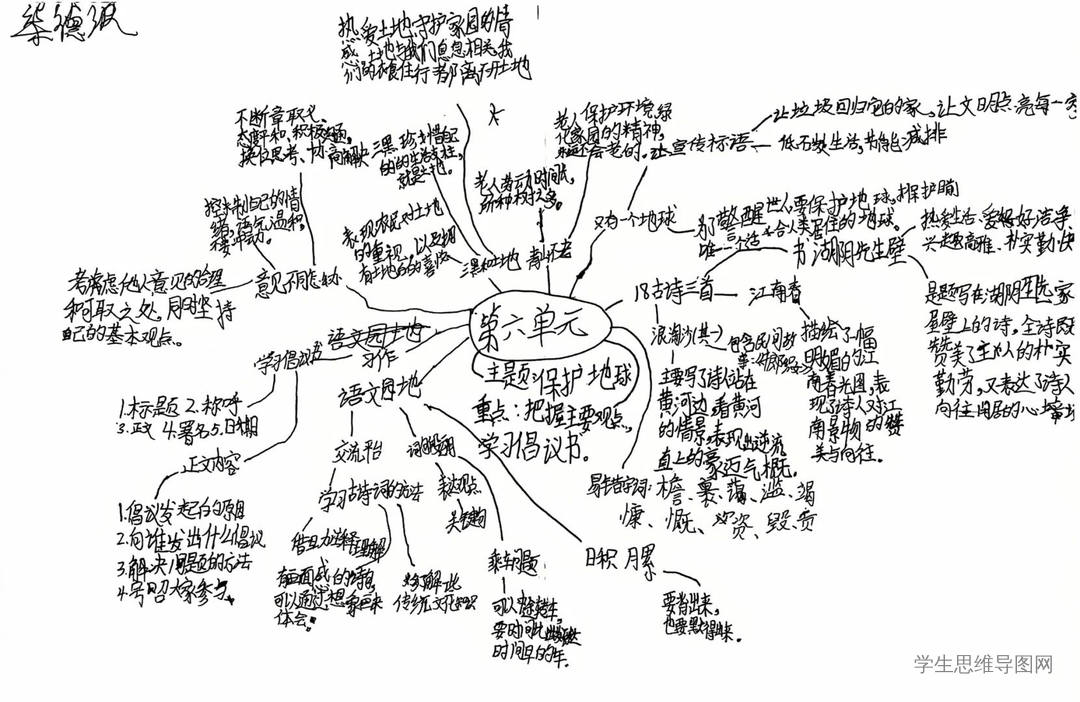 柴德波
热爱土地,守护家园的情
感,土地与我们息息相关,我
们的衣食住行都离不开土地
不断章取义,
态度平和、积极
换位思考、协商解决
三黑珍惜自己
的生活支柱,
就是土地。
老人保护环境,绿
化家园的精神,
老人劳动时间长,
所种树之多。
让垃圾回归它的家,让文明点亮每一
宣传标语
低石炭生活,节能减排
控制自己的情
绪,语气温和,
不要冲动。
表现农民对土地
的重视,以及拥
有土地的喜悦
三黑和土地
青山不老
只有一个地球
警醒世人要保护地球,保护
唯一适合人类居住的地球。
书湖阴先生壁
热爱生活、爱好洁净
兴趣高雅、朴实勤快
考虑他人意见的合理
和可取之处,同时坚持
自己的基本观点。
意见不同怎么办
18古诗三首
江南春
浪淘沙(其一)
是题写在湖阴先生家
屋壁上的诗。全诗既
赞美了主人的朴实
勤劳,又表达了诗人
向往田居的心境
第六单元
主题:保护地球
重点:把握主要观点,
学习倡议书。
语文园地
习作
学习倡议书
1.标题 2.称呼
3.正文 4.署名 5.日期
正文内容
1.倡议发起的原因
2.向谁发出什么倡议
3.解决问题的方法
4.号召大家参与。
语文园地
交流平台
词句段运用
学习古诗词的方法
表达观点
关键句
借助注释理解
有画面感的诗句,
可以通过想象画面来
体会。
要了解一些
传统文化知识
乘车问题
时间早的车。
日积月累
要背出来,
也要默得出来。
主要写了诗人站在
黄河边,看黄河
的情景,表现出逆流
直上的豪迈气概。
描绘了一幅
明媚的江
南春光图,表
现了诗人对江
南景物的赞
美与向往。
易错字词:檐、裹、蔼、滥、竭
慷、慨、资、毁、贡
学生思维导图网